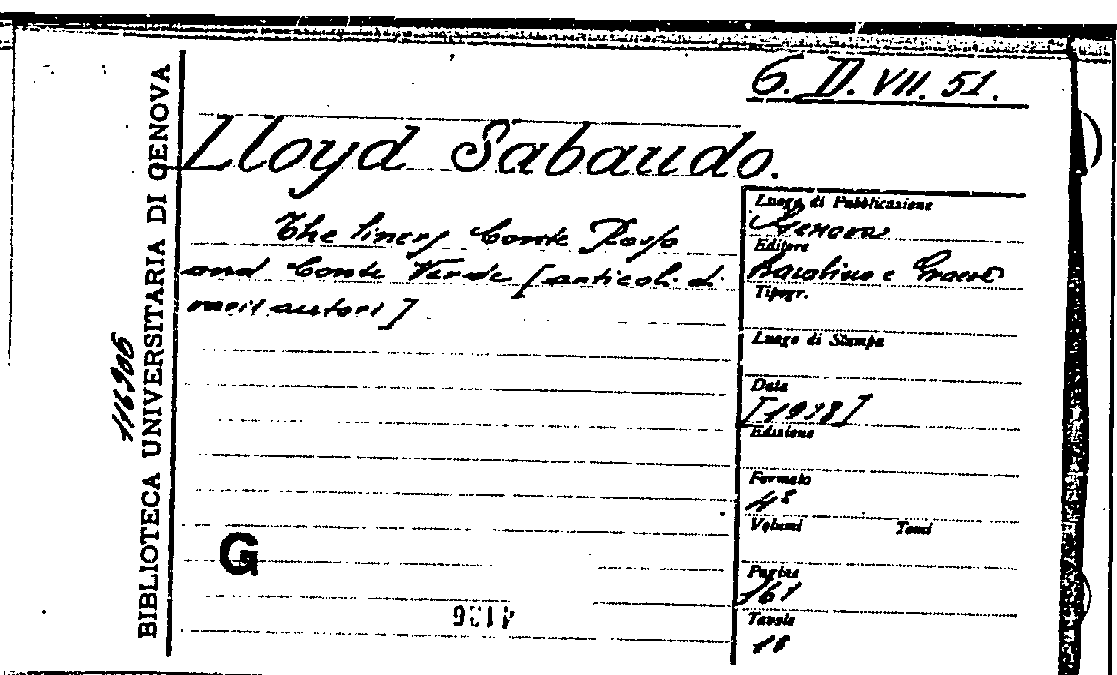 G. D. VII. 51.
Lloyd Sabaudo.
The liners Conte Rosso
and Conte Verde [articoli di
varii autori]
BIBLIOTECA UNIVERSITARIA DI GENOVA
116905
Luogo di Pubblicazione
Genova
Editore
Barabino e Graeve
Tipogr.
Luogo di Stampa
Data
Edizione
Formato
4°
Volumi Tomi
Pagine
161
Tavole
G